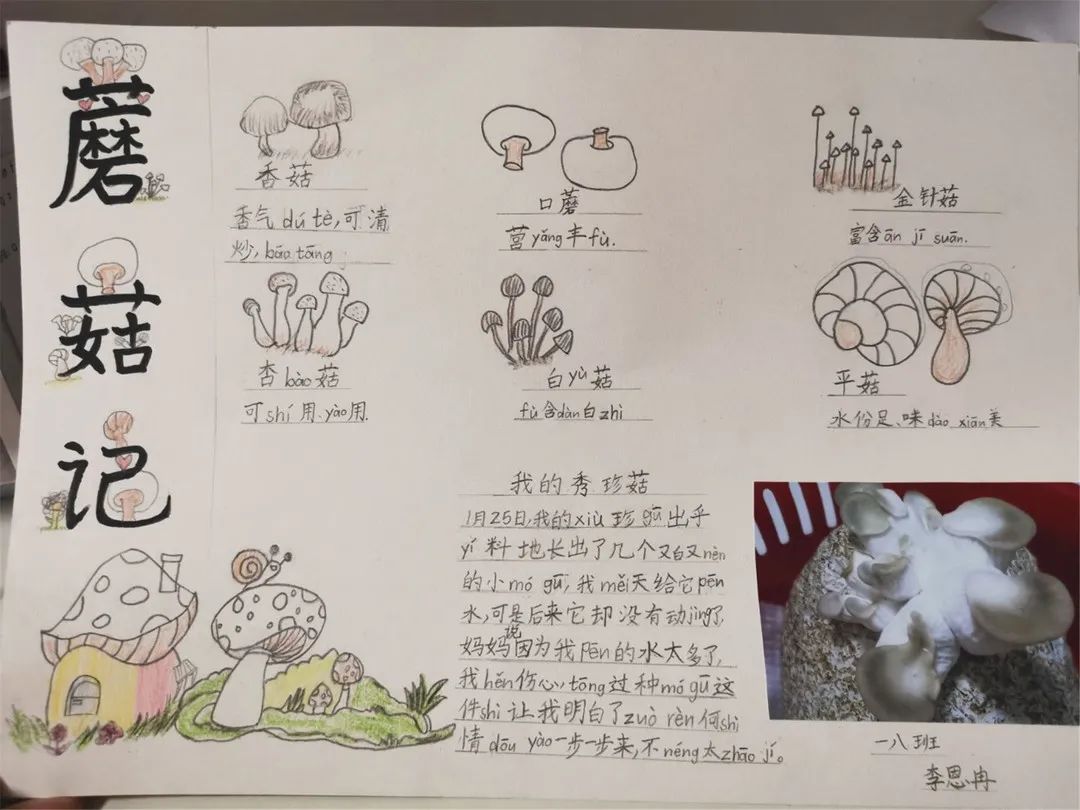 蘑
菇
记
香菇
香气dú tè,可清
炒,bāo tāng
口蘑
营yǎng丰fù.
金针菇
富含ān jī suān.
杏bào菇
可shí用、yào用.
白yù菇
fù含dàn白zhì
平菇
水份足、味dào xiān美
我的秀珍菇
1月25日,我的xiù珍gū出乎
yí料地长出了几个又白又nèn
的小mó gū,我měi天给它pēn
水,可是后来它却没有动jìng了,
妈妈说因为我pēn的水太多了,
我hěn伤心,tōng过种mó gū这
件shì让我明白了zuò rèn何shì
情dōu yào一步一步来,不néng太zhāo jí。
一八班
李思冉